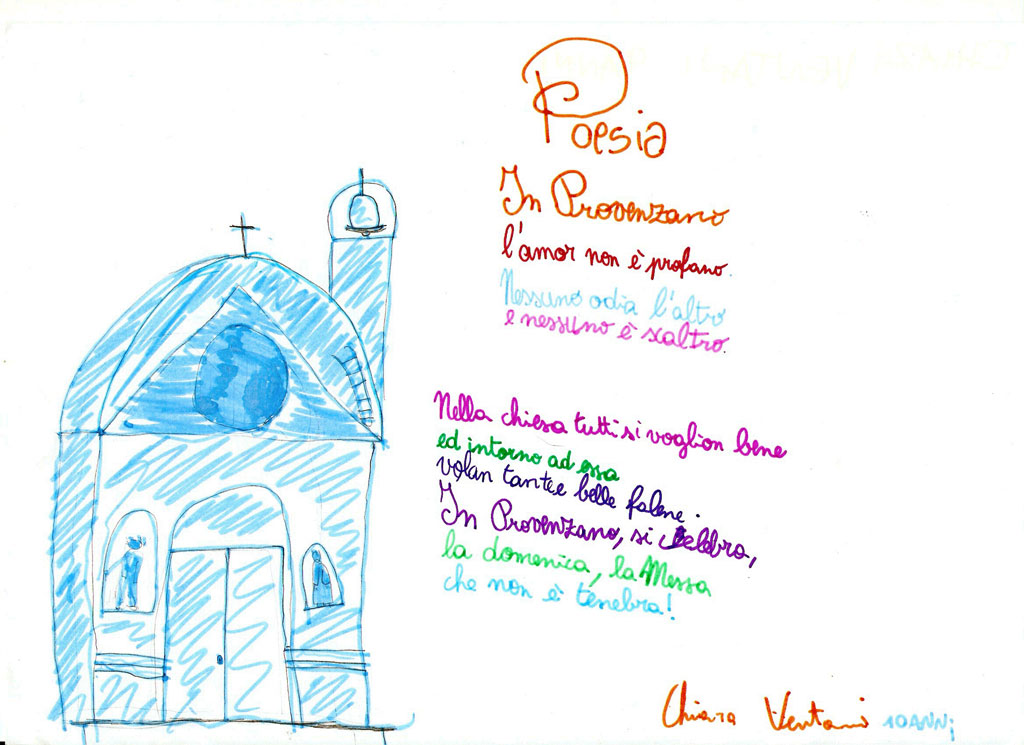 Poesia
In Provenzano
l'amor non è profano.
Nessuno odia l'altro
e nessuno è scaltro.
Nella chiesa tutti si voglion bene
ed intorno ad essa
volan tante belle falene.
In Provenzano, si celebra,
la domenica, la Messa
che non è tenebra!
Chiara Ventani 10 ANNi